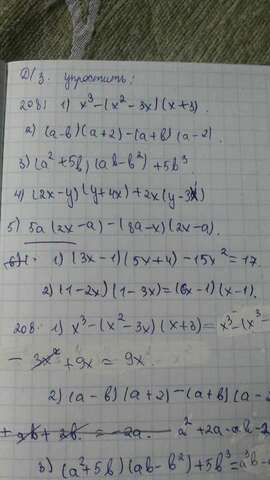 Д/з. упростить:
208. 1) x³-(x²-3x)(x+3).
2) (a-b)(a+2)-(a+b)(a-2).
3) (a²+5b)(ab-b²)+5b³.
4) (2x-y)(y+4x)+2x(y-3x)
5) 5a(2x-a)-(8a-x)(2x-a).
1) (3x-1)(5x+4)-15x²=17.
2) (1-2x)(1-3x)=(6x-1)(x-1).
208. 1) x³-(x²-3x)(x+3)=x³-(x³-
- 3x² + 9x = 9x
2) (a-b)(a+2)-(a+b)(a-
= -2a. a²+2a-ab-2
3) (a²+5b)(ab-b²)+5b³=a³b-